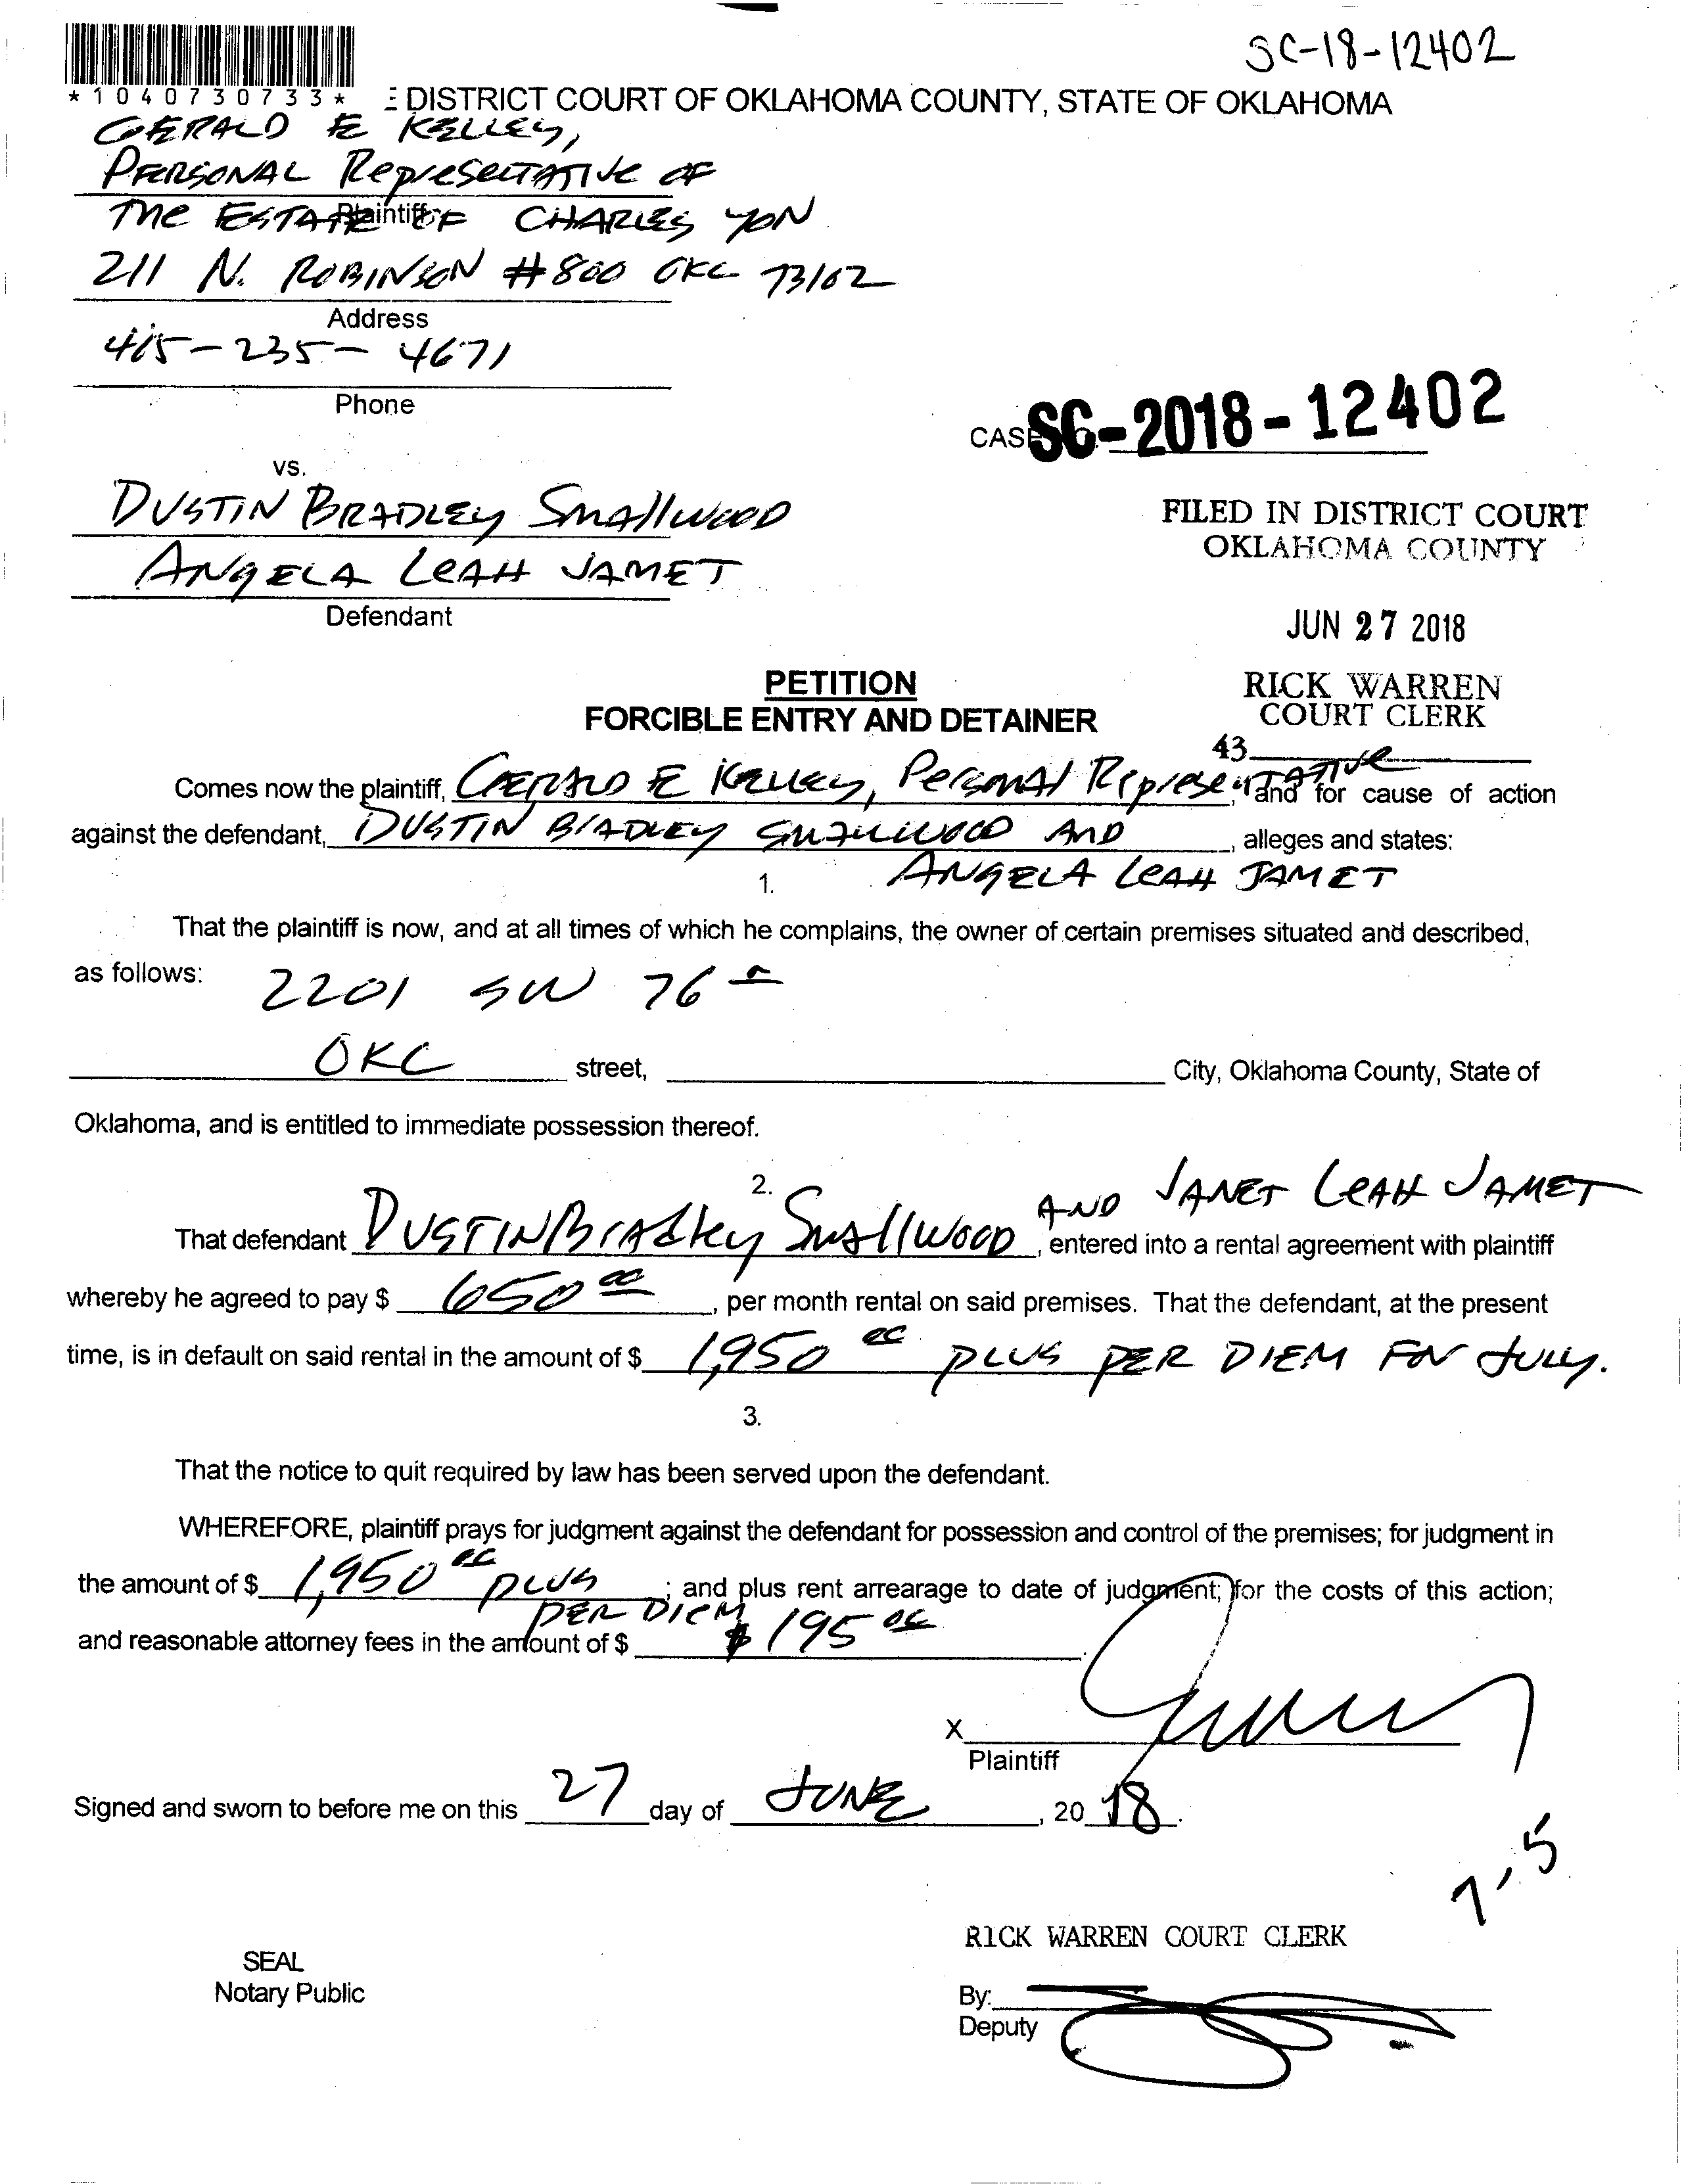 SC-18-12402
*1040730733*
DISTRICT COURT OF OKLAHOMA COUNTY, STATE OF OKLAHOMA
GERALD E KELLEY,
PERSONAL Representative OF
THE ESTATE OF CHARLES YON
Plaintiff
211 N. ROBINSON #800 OKC 73102
Address
415-235-4671
Phone
CAS SC-2018-12402
vs.
DUSTIN BRADLEY SmAllwooD
ANGELA LEAH JAMET
Defendant
FILED IN DISTRICT COURT
OKLAHOMA COUNTY
JUN 27 2018
RICK WARREN
COURT CLERK
43
PETITION
FORCIBLE ENTRY AND DETAINER
Comes now the plaintiff, GERALD E KELLEY, PersonAl RepresentATive, and for cause of action
against the defendant, DUSTIN BRADLEY SMALLWOOD AND, alleges and states:
ANGELA LEAH JAMET
1.
That the plaintiff is now, and at all times of which he complains, the owner of certain premises situated and described,
as follows: 2201 SW 76
OKC street, City, Oklahoma County, State of
Oklahoma, and is entitled to immediate possession thereof.
2.
AND JANET LEAH JAMET
That defendant DUSTIN BrAdley SmAllwooD, entered into a rental agreement with plaintiff
whereby he agreed to pay $ 650 00, per month rental on said premises. That the defendant, at the present
time, is in default on said rental in the amount of $ 1,950 00 PLUS PER DIEM FOR JULY.
3.
That the notice to quit required by law has been served upon the defendant.
WHEREFORE, plaintiff prays for judgment against the defendant for possession and control of the premises; for judgment in
the amount of $ 1,950 00 PLUS; and plus rent arrearage to date of judgment; for the costs of this action;
PER DIEM
and reasonable attorney fees in the amount of $ $195 00.
X
Plaintiff
Signed and sworn to before me on this 27 day of JUNE, 20 18.
7-5
RICK WARREN COURT CLERK
SEAL
Notary Public
By:
Deputy